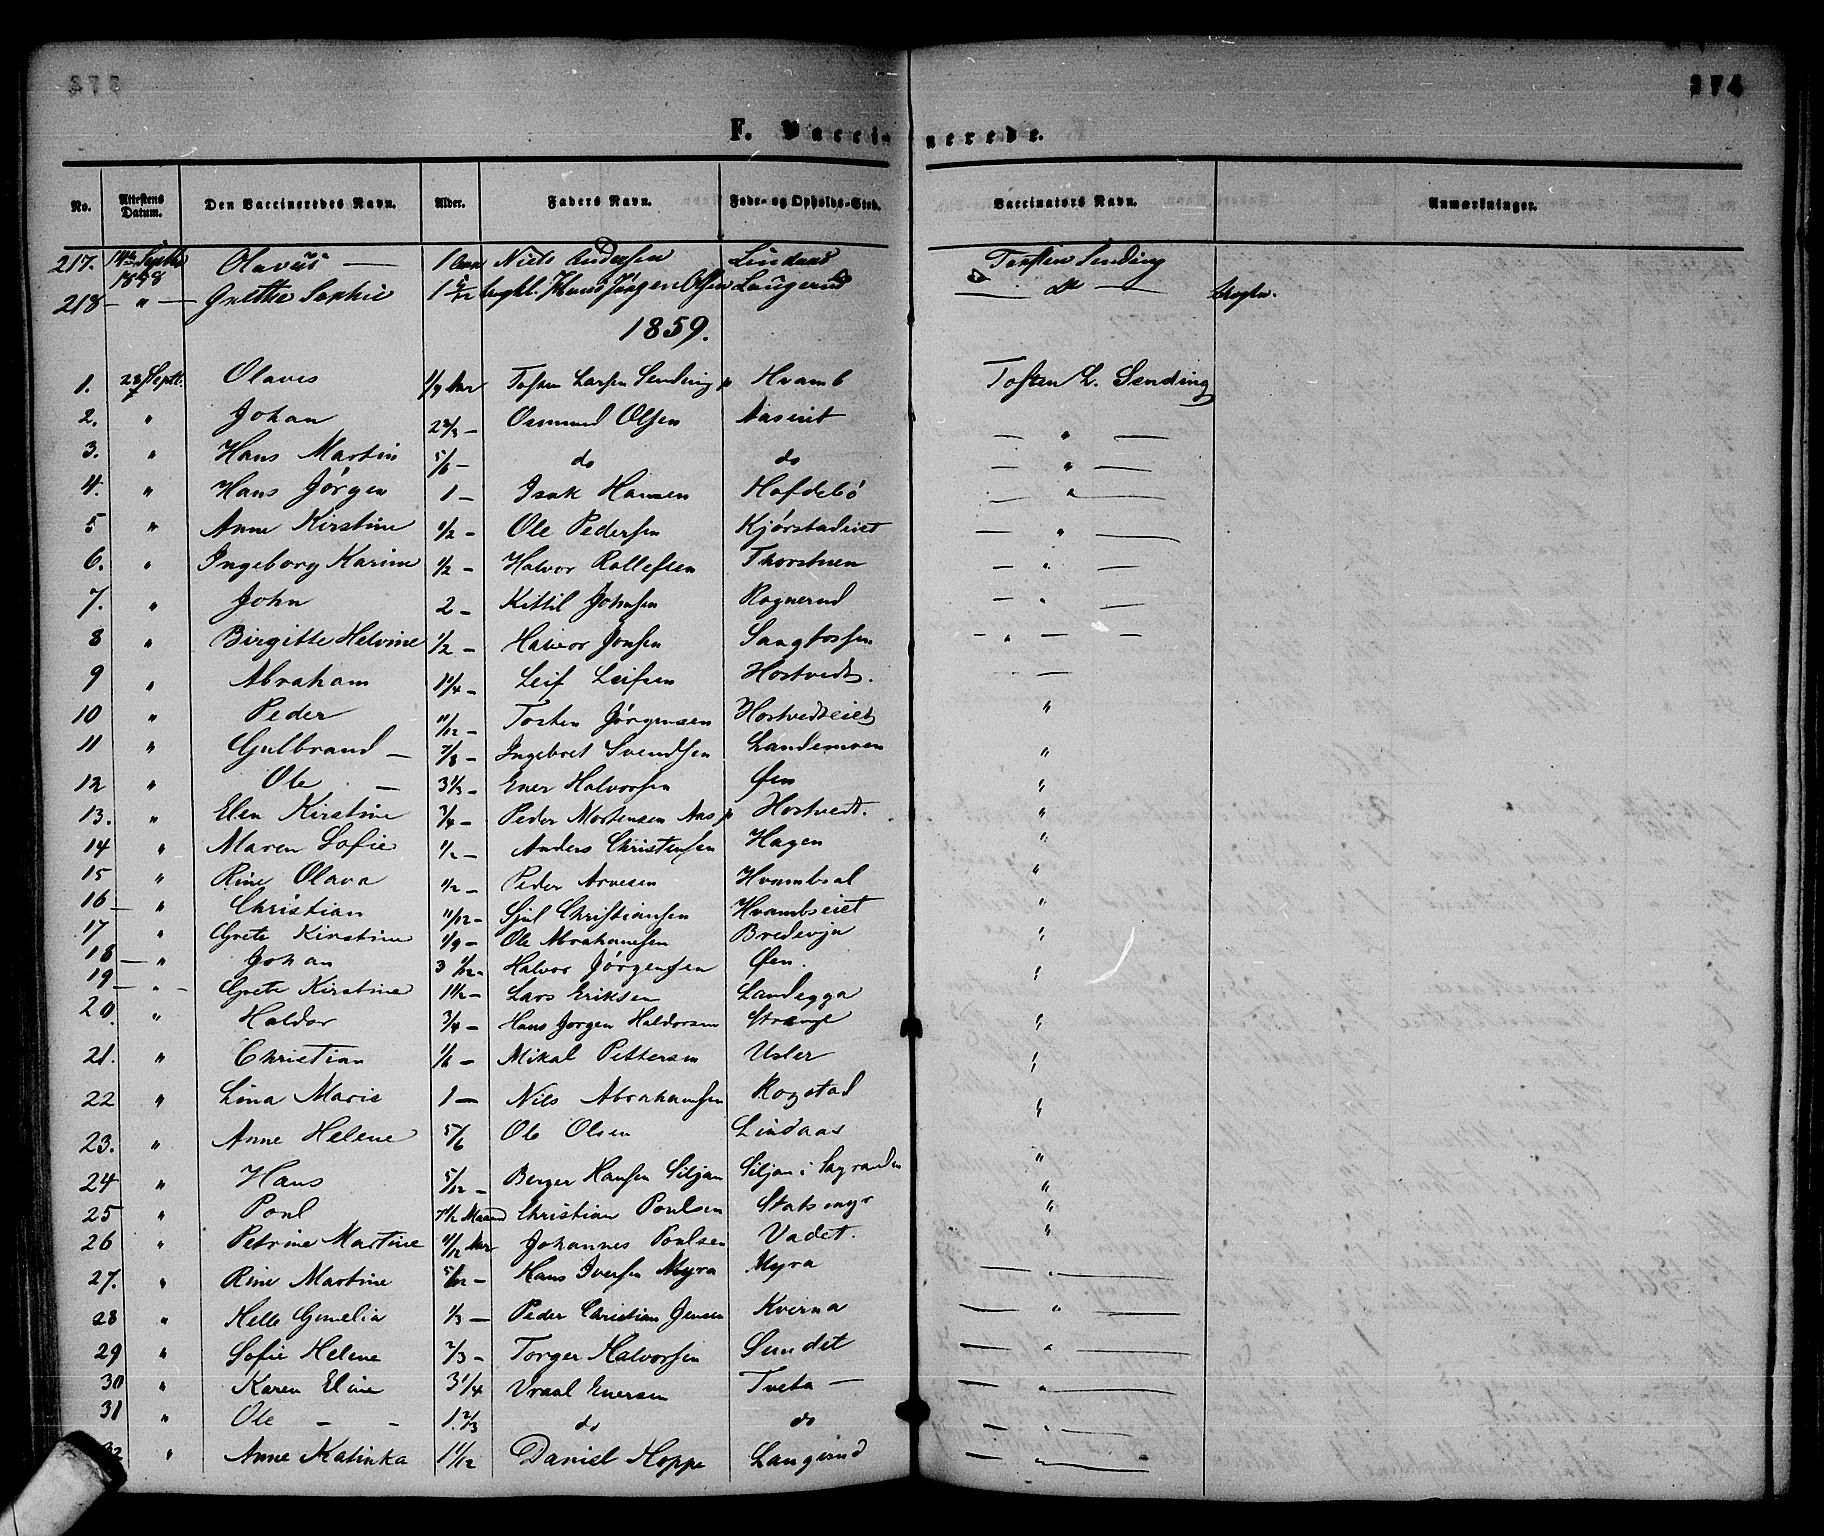 374
F. Vaccinerede.
No. Attestens Datum. Den Vaccineredes Navn. Alder. Faders Navn. Føde- og Opholds-Sted. Vaccinators Navn. Anmærkninger.
217. 14de Septbr 1858 Olavus — 1 Niels Andersen Lindaas Torsten Sending
218 — " — Grethe Sophie 1 5/12 Hans Jørgen Olsen Laugerud — do —
1859.
1. 28 Septb. Olaves Tosten Larsen Sending p Hvamb Tosten L. Sending
2. " Johan 2 2/3 — Osmund Olsen Aaseiet — " —
3. " Hans Martin 5/6 — do do — " —
4. " Hans Jørgen 1 — Isak Hansen Hofdebö — " —
5 " Anne Kirstine 1/2 — Ole Pedersen Kjörstadeiet — " —
6. " Ingeborg Karine 1/2 — Halvor Rollefsen Thorstuen — " —
7. " John 2 — Kittil Johnsen Rognerud — " —
8 " Birgitte Helvine 1/2 — Halvor Jonsen Sangfossen — " — —
9 " Abraham 1 1/4 — Leif Leifsen Hostvedt. — —
10 " Peder 11/12 — Tosten Jørgensen Hostvedteiet "
11 " Gulbrand — 7/8 — Ingebret Svendsen Landemoen "
12 " Ole — 3 1/3 — Ener Halvorsen Øen "
13. " Elen Kirstine 3/4 — Peder Mortensen Aas p Hostvedt. "
14 " Maren Sofie 1/2 — Anders Christensen Hagen "
15 " Rine Olava 1/2 — Peder Arvesen Hvambsal "
16 — " Christian 11/12 — Sjul Christiansen Hvambseiet "
17 " Grete Kirstine 1/9 — Ole Abrahamsen Bredevja "
18 — " Johan 3 1/12 — Halvor Jørgensen Øen. "
19 — " — Grete Kirstine 1 1/2 — Lars Eriksen Landegga
20. " Haldor 3/4 — Hans Jorgen Haldorsen Strange "
21. " Christian 1/6 — Mikal Pettersen Usler "
22 " Lina Marie 1 — Nils Abrahamsen Rogstad "
23. " Anne Helene 5/6 Ole Olsen Lindaas
24 " Hans 5/12 — Berger Hansen Siljan Siljan i "
25 " Poul 7 1/2 Maaned Christian Poulsen Statsmyr "
26 " Petrine Martine 11/12 Aar Johannes Poulsen Vadet. "
27. " Rine Martine 5/12 — Hans Iversen Myra Myra — " —
28 " Helle Gunelia 1/3 — Peder Christian Jensen Kverna — " —
29 " Sofie Helene 2/3 — Torger Halvorsen Sundet — " —
30 " Karen Eline 3 1/4 Vraal Enersen Tveta — — " —
31 " Ole — — 1 2/3 do do — " —
32 " Anne Katinka 1 1/12 Daniel Hoppe Langerud — " —